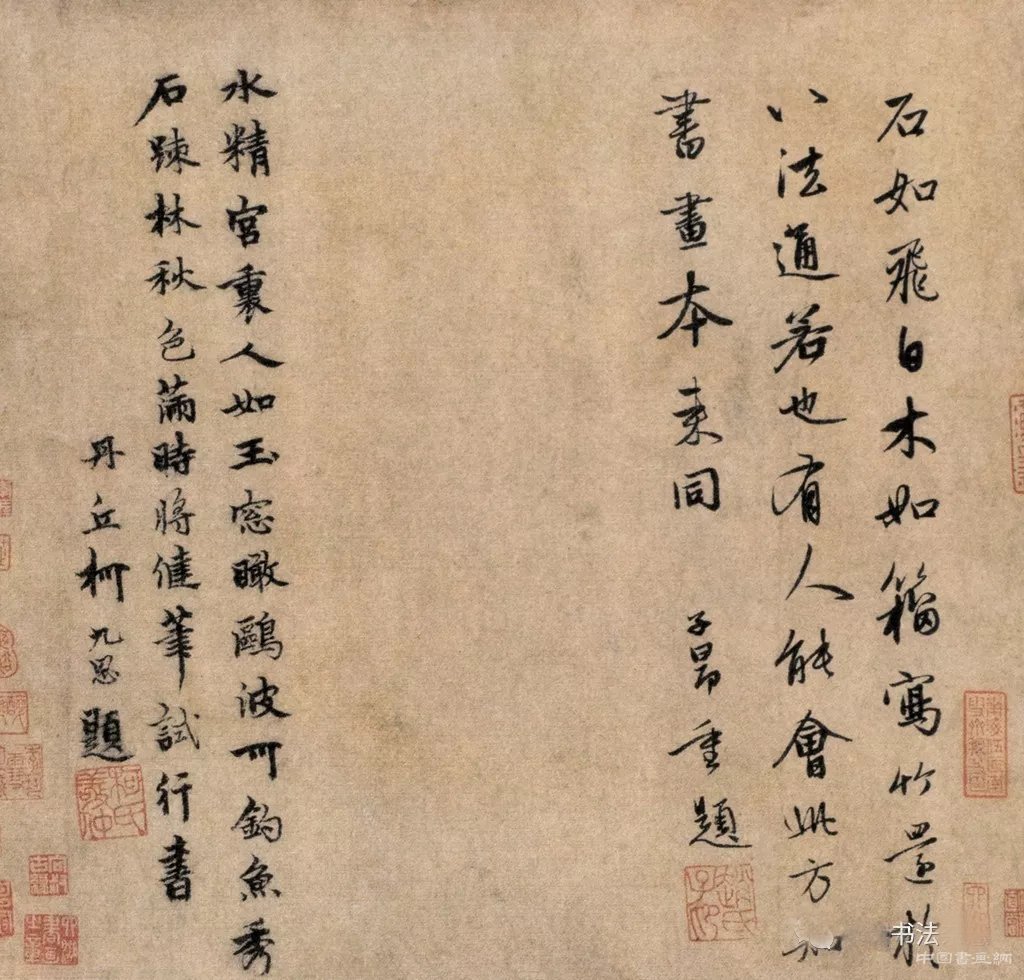 石如飛白木如籀寫竹還於
八法通若也有人能會此方知
書畫本来同 子昂重題
水精宮裏人如玉窓瞰鷗波可釣魚秀
石踈林秋色滿時將健筆試行書
丹丘柯九思題
柯氏敬仲
书法
中国書画網